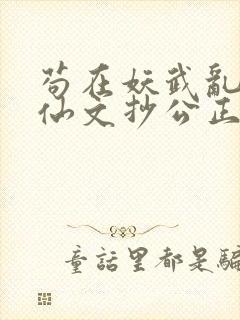 苟在妖武亂
仙文抄公正
童話里都是騙